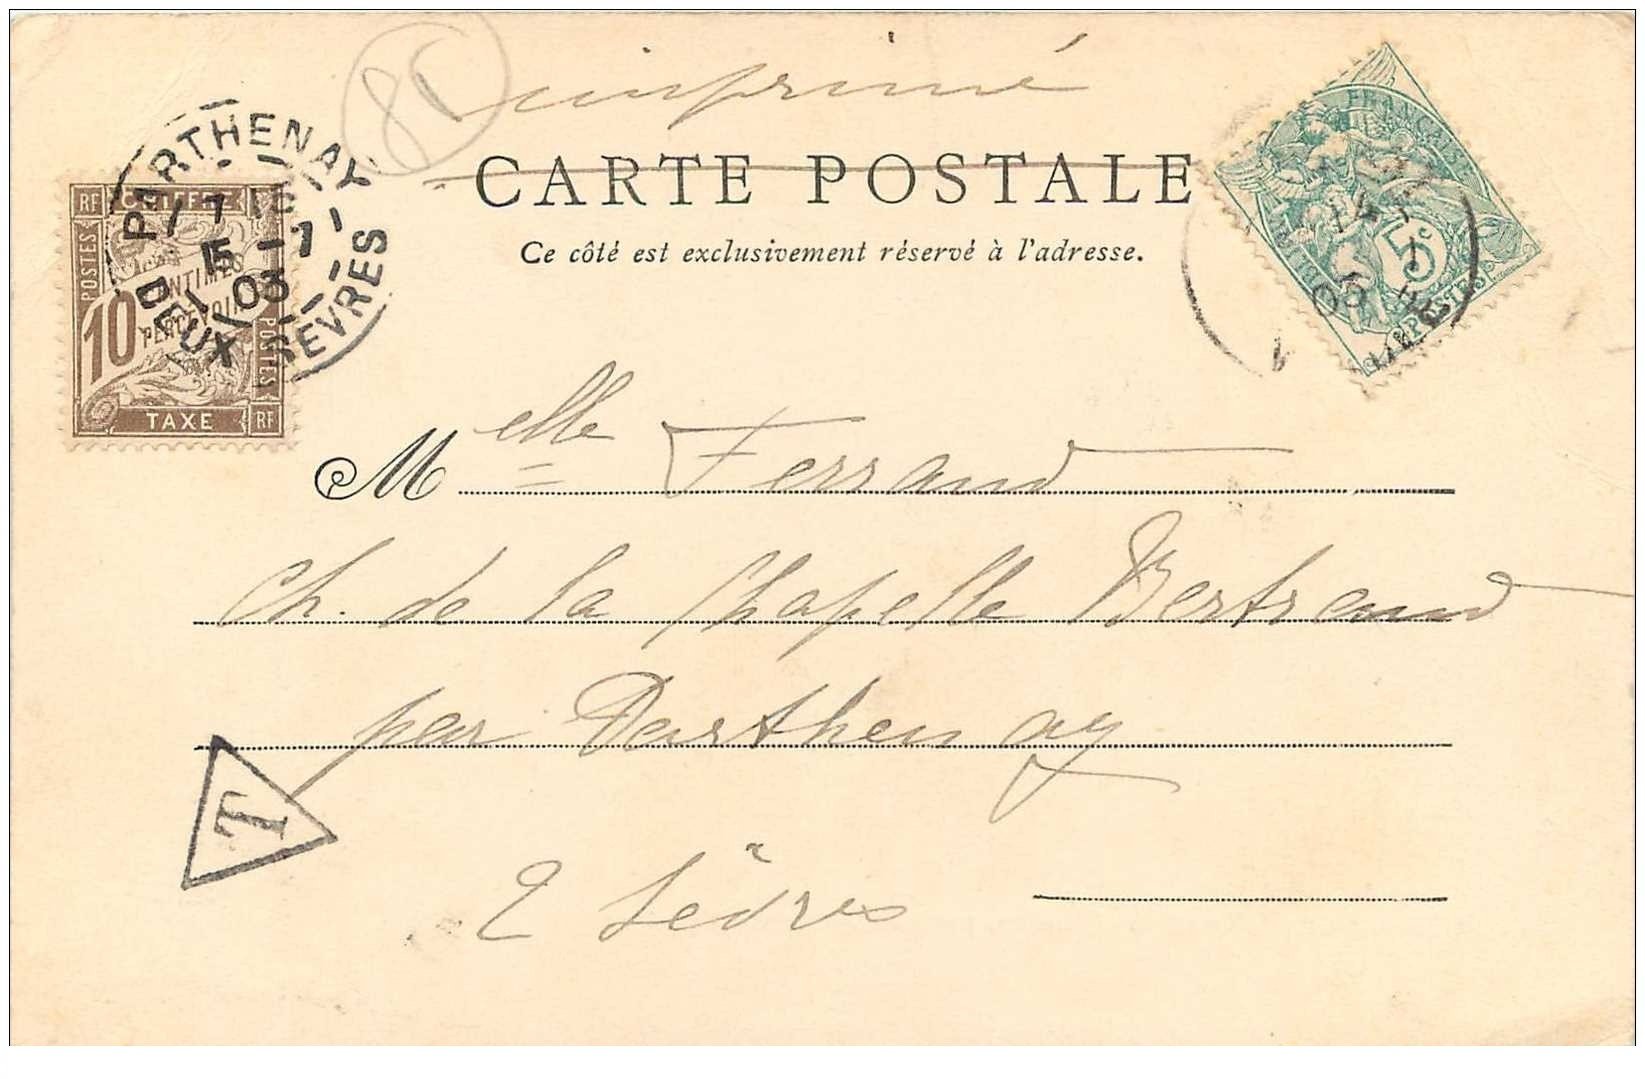 imprimé
80
CARTE POSTALE
Ce côté est exclusivement réservé à l'adresse.
PARTHENAY
DEUX SÈVRES
15 -1
03
RF CHIFFRE
POSTES
10
CENTIMES
À PERCEVOIR
POSTES
TAXE RF
FRANÇAISE
5c
POSTES
14 1
03
Melle Ferrand
Ch. de la Chapelle Bertrand
par Parthenay
2 Sèvres
T